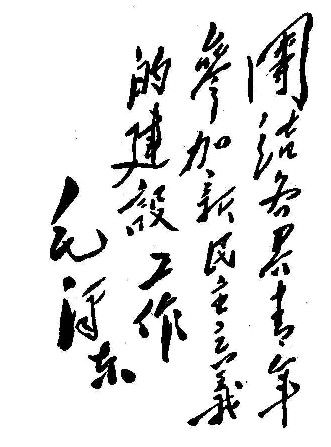 團结各界青年
參加新民主主義
的建設工作
毛泽东